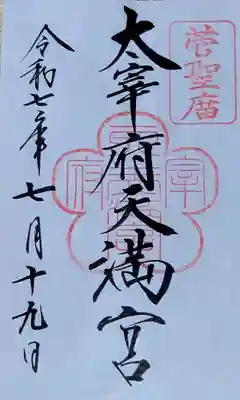 菅聖庿
太宰府天満宮
令和七年七月十九日